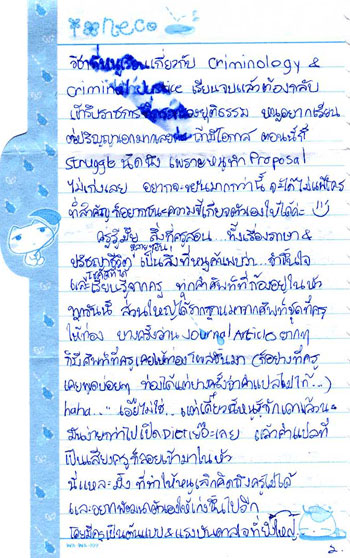 neco
วิชาที่หนูเรียนเกี่ยวกับ Criminology &
Criminal Justice เรียนจบแล้วต้องกลับ
เข้ารับราชการที่ ยุติธรรม หนูอยากเรียน
ต่อปริญญาเอกมากเลยค่ะ ถ้ามีโอกาส ตอนนี้ก็
struggle นิดนึง เพราะหนูทำ Proposal
ไม่เก่งเลย อยากจะขยันมากกว่านี้ จะได้ไม่แพ้ใคร
ที่สำคัญก็อยากชนะความขี้เกียจตัวเองให้ได้ค่ะ
ครูวีมัย สิ่งที่ครูสอน... ทั้งเรื่องภาษา &
ปรัชญาชีวิต เป็นสิ่งที่หนูค้นพบว่า... จำขึ้นใจ
และเรียนรู้จากครู ทุกคำศัพท์ที่ก้องอยู่ในหัว
ทุกวันนี้ ส่วนใหญ่ได้รากฐานมาจากศัพท์ชุดที่ครู
ให้ท่อง บางครั้งอ่าน Journal Article ยากๆ
ก็มีศัพท์ที่ครูเคยให้ท่องโผล่ขึ้นมา (ก็อย่างที่ครู
เคยพูดบ่อยๆ ท่องได้แต่บางครั้งจำคำแปลไม่ได้...)
haha... เอ๊ยไม่ใช่... แต่เดี๋ยวนี้หนูรู้จักเดาแล้วนะ
มันง่ายกว่าไปเปิด Dict เยอะเลย แล้วคำแปลที่
เป็นเสียงครูก็ลอยเข้ามาในหัว
นี่แหละมั้ง ที่ทำให้หนูเลิกคิดถึงครูไม่ได้
และอยากพัฒนาตัวเองให้เก่งขึ้นไปอีก
โดยมีครูเป็นต้นแบบ & แรงบันดาลใจที่ยิ่งใหญ่
2.